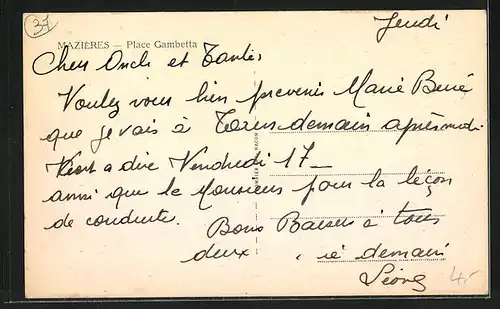 37
Jeudi
MAZIÈRES — Place Gambetta
Cher Oncle et Tantes
Voulez vous bien prevenir Marie René
que je vais à Tours demain après midi
c'est a dire Vendredi 17 —
ainsi que le Monsieur pour la leçon
de conduite.
Bons Baisers à tous
deux. à demain
4,-